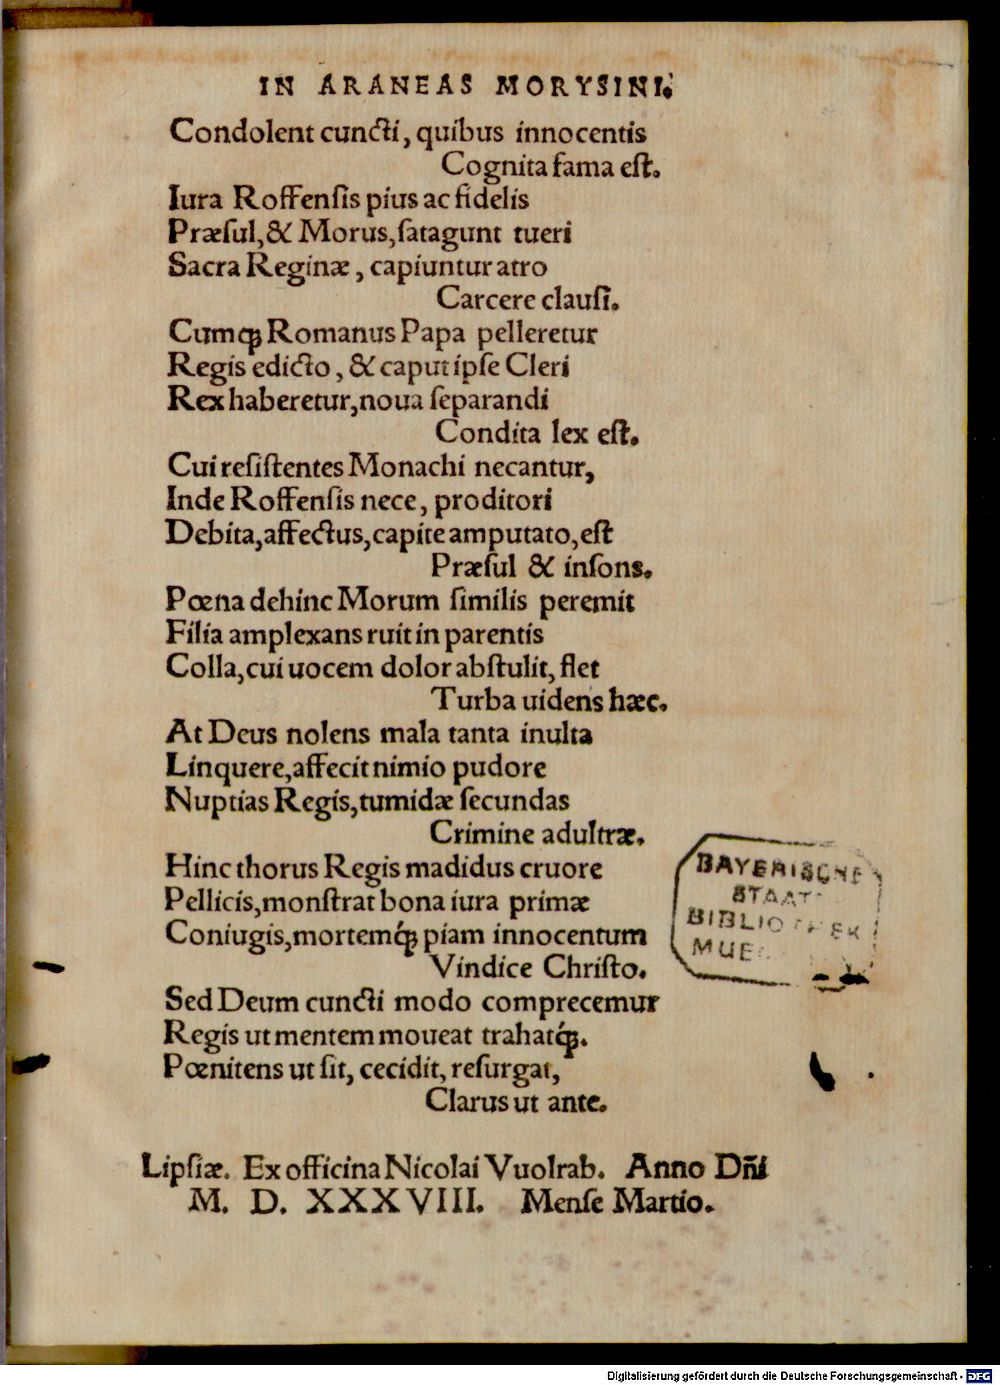 IN ARANEAS MORYSINI.
Condolent cuncti, quibus innocentis
Cognita fama eſt.
Iura Roffenſis pius ac fidelis
Præſul, & Morus, ſatagunt tueri
Sacra Reginæ, capiuntur atro
Carcere clauſi.
Cumq́ꝫ Romanus Papa pelleretur
Regis edicto, & caput ipſe Cleri
Rex haberetur, noua ſeparandi
Condita lex eſt.
Cui reſiſtentes Monachi necantur,
Inde Roffenſis nece, proditori
Debita, affectus, capite amputato, eſt
Præſul & inſons.
Pœna dehinc Morum ſimilis peremit
Filia amplexans ruit in parentis
Colla, cui uocem dolor abſtulit, flet
Turba uidens hæc.
At Deus nolens mala tanta inulta
Linquere, affecit nimio pudore
Nuptias Regis, tumidæ ſecundas
Crimine adultræ.
Hinc thorus Regis madidus cruore
Pellicis, monſtrat bona iura primæ
Coniugis, mortemq́ꝫ piam innocentum
Vindice Chriſto.
Sed Deum cuncti modo comprecemur
Regis ut mentem moueat trahatq́ꝫ.
Pœnitens ut ſit, cecidit, reſurgat,
Clarus ut ante.
Lipſiæ. Ex officina Nicolai Vuolrab. Anno Dñi
M. D. XXXVIII. Menſe Martio.
BAYERISCHE
STAAT
BIBLIOTHEK
MUE
Digitalisierung gefördert durch die Deutsche Forschungsgemeinschaft - DFG